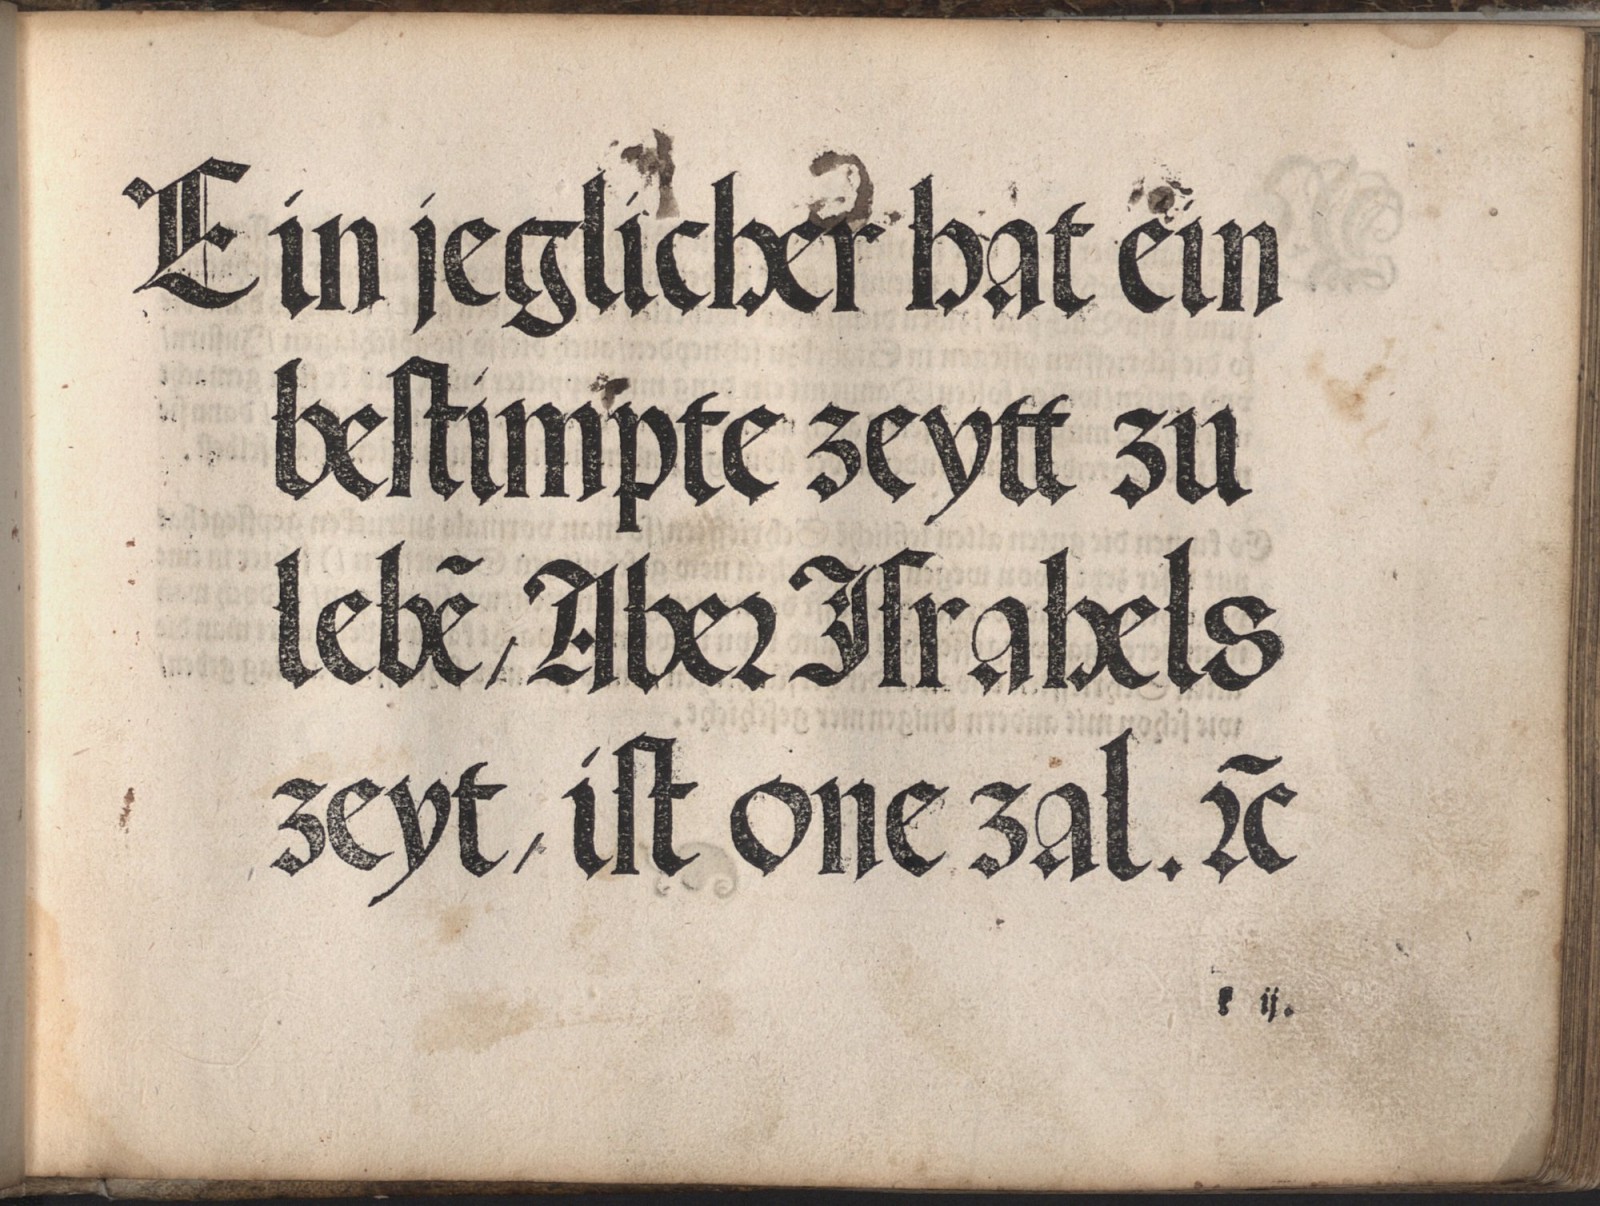 Ein jeglicher hat ein
beſtimpte zeytt zu
lebē / Aber Iſrahels
zeyt / iſt one zal. ꝛc̄
g ij.